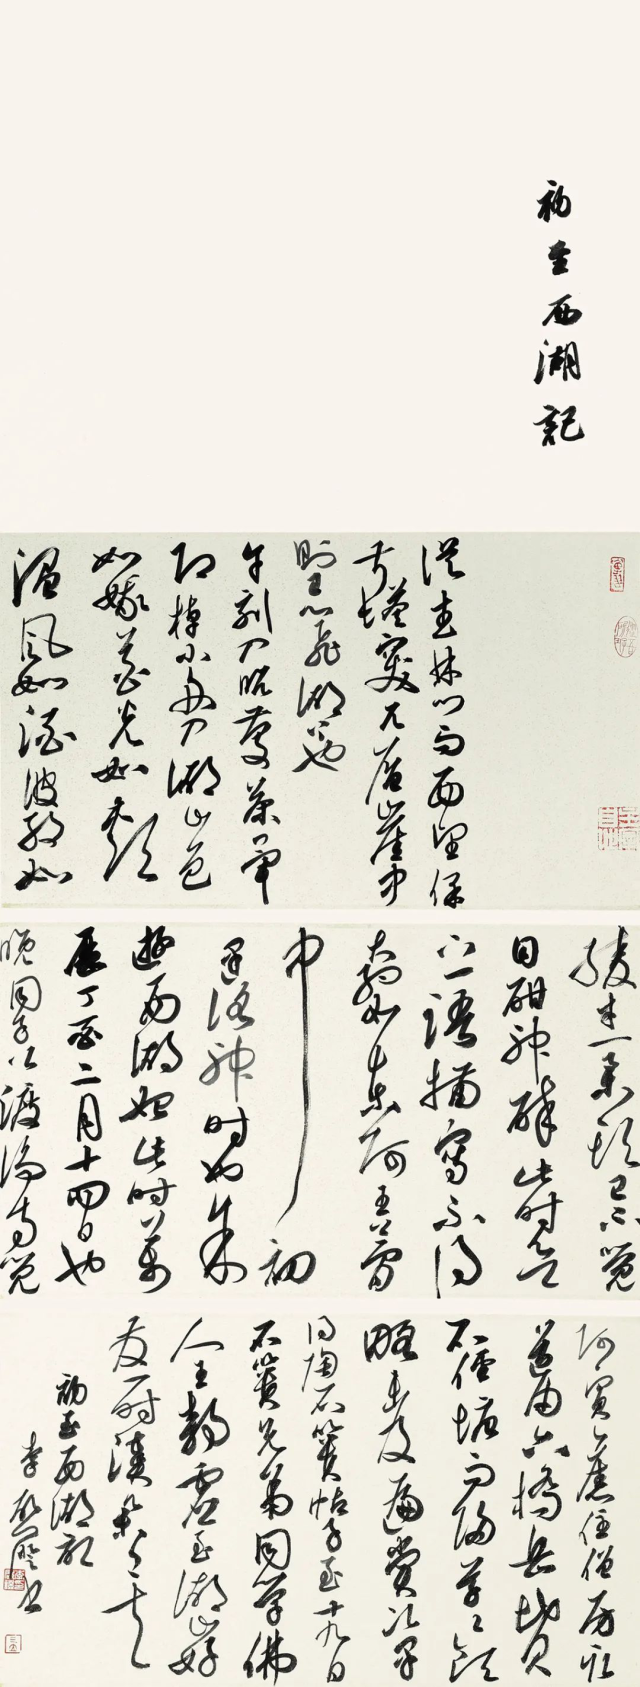 初至西湖記
從武林門而西望保
叔塔突兀層崖中
則已心飛湖上也
午刻入昭慶茶畢
即棹小舟入湖山色
如娥花光如頰
溫風如酒波紋如
綾才一舉頭已不覺
目酣神醉此時欲
下一語描寫不得
大約如東阿王夢
中初
遇洛神時也余
遊西湖始此時萬
曆丁酉二月十四日也
晚同子公渡淨寺覓
阿賓舊住僧房取
道由六橋岳墳
石徑塘而歸草草領
略未及遍賞次早
得陶石簣帖子至十九日
石簣兄弟同學佛
人王靜虛至湖山好
友一時湊集矣
初至西湖記
李